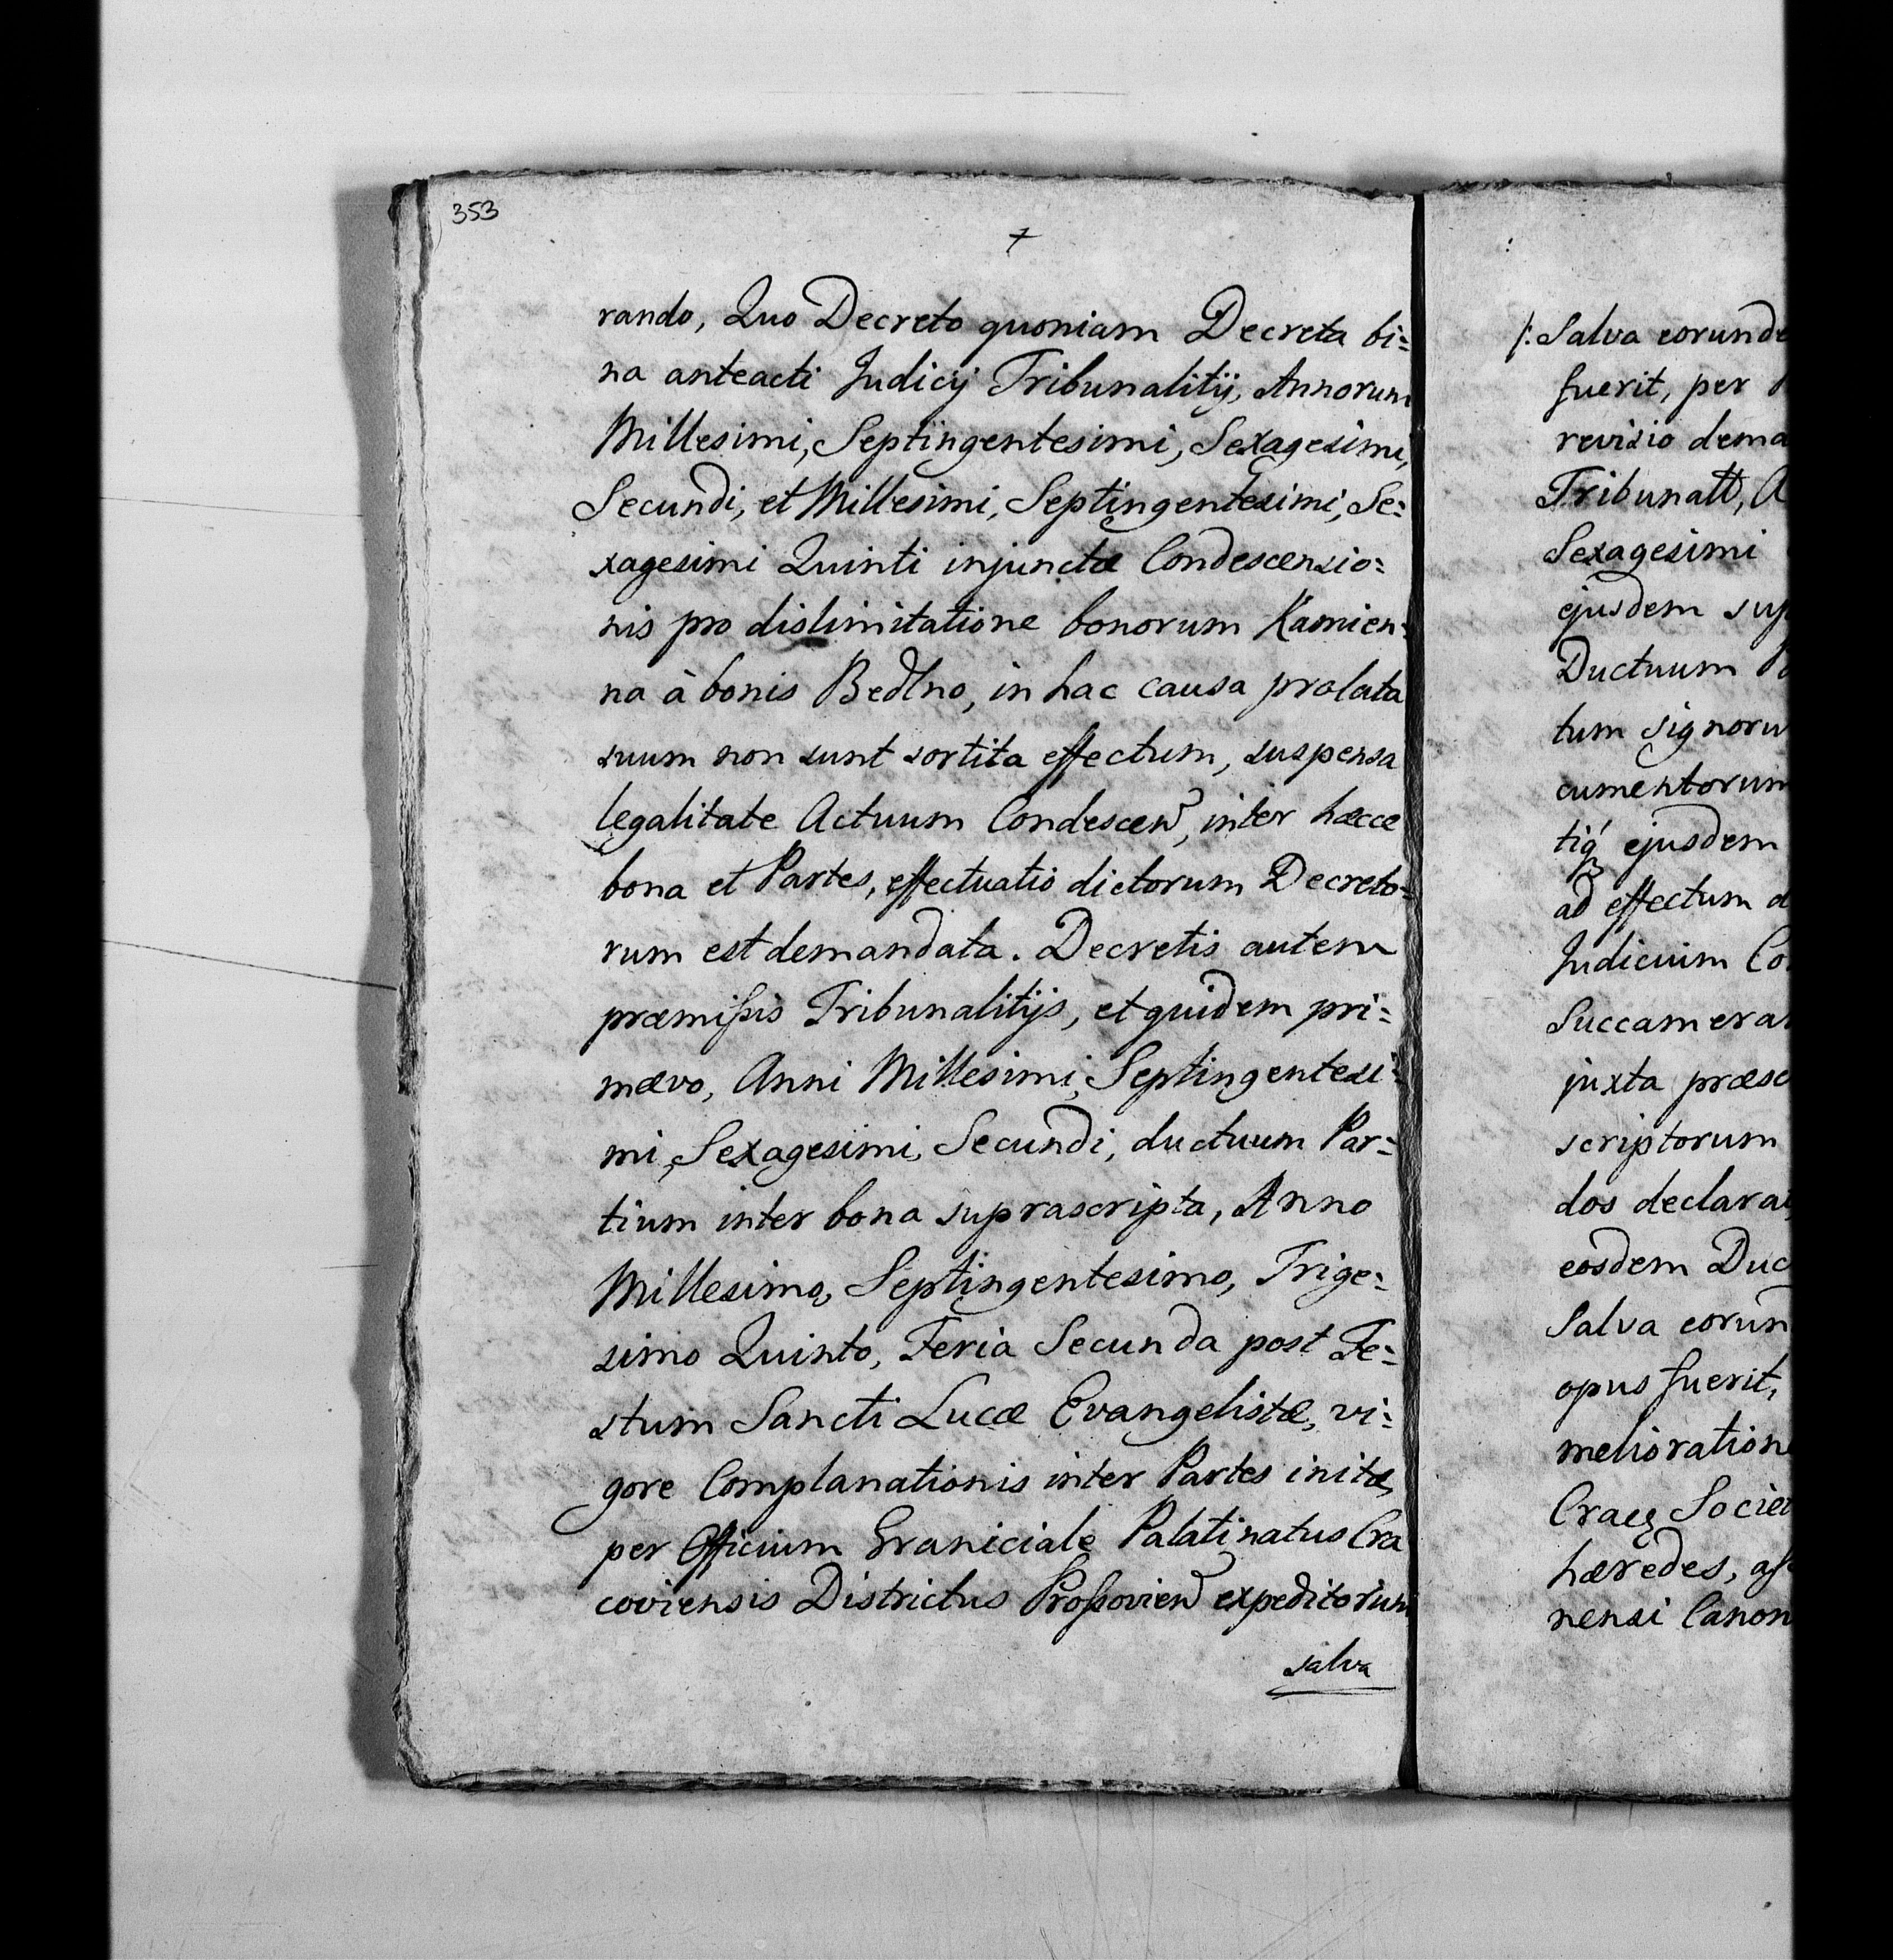 353
+
rando, Quo Decreto quoniam Decreta bi=
na anteacti Judicij Tribunalitij, Annorum
Millesimi, Septingentesimi, Sexagesimi,
Secundi, et Millesimi, Septingentesimi, Se=
xagesimi Quinti injunctæ Condescensio=
nis pro dislimitatione bonorum Kamien=
na à bonis Bedlno, in hac causa prolata
suum non sunt sortita effectum, suspensa
legalitate Actuum Condescen, inter hæcce
bona et Partes, effectuatio dictorum Decreto=
rum est demandata. Decretis autem
præmissis Tribunalitijs, et quidem pri=
mævo, Anni Millesimi, Septingentesi=
mi, Sexagesimi, Secundi, ductuum Par=
tium inter bona suprascripta, Anno
Millesimo, Septingentesimo, Trige=
simo Quinto, Feria Secunda post Fe=
stum Sancti Lucæ Evangelistæ, vi=
gore Complanationis inter Partes initæ,
per Officium Graniciale Palatinatus Cra
coviensis Districtus Prossovien expeditorum
salva
/: Salva eorunde
fuerit, per
revisio dema
Tribunalt, A
Sexagesimi
ejusdem sup
Ductuum
tum signoru
cumentorum
tiq ejusdem
ad effectum d
Judicium Co
Succamerar
juxta præsc
scriptorum
dos declara
eosdem Duc
Salva eorun
opus fuerit,
melioratione
Crac Societ
hæredes, ass
nensi Canon